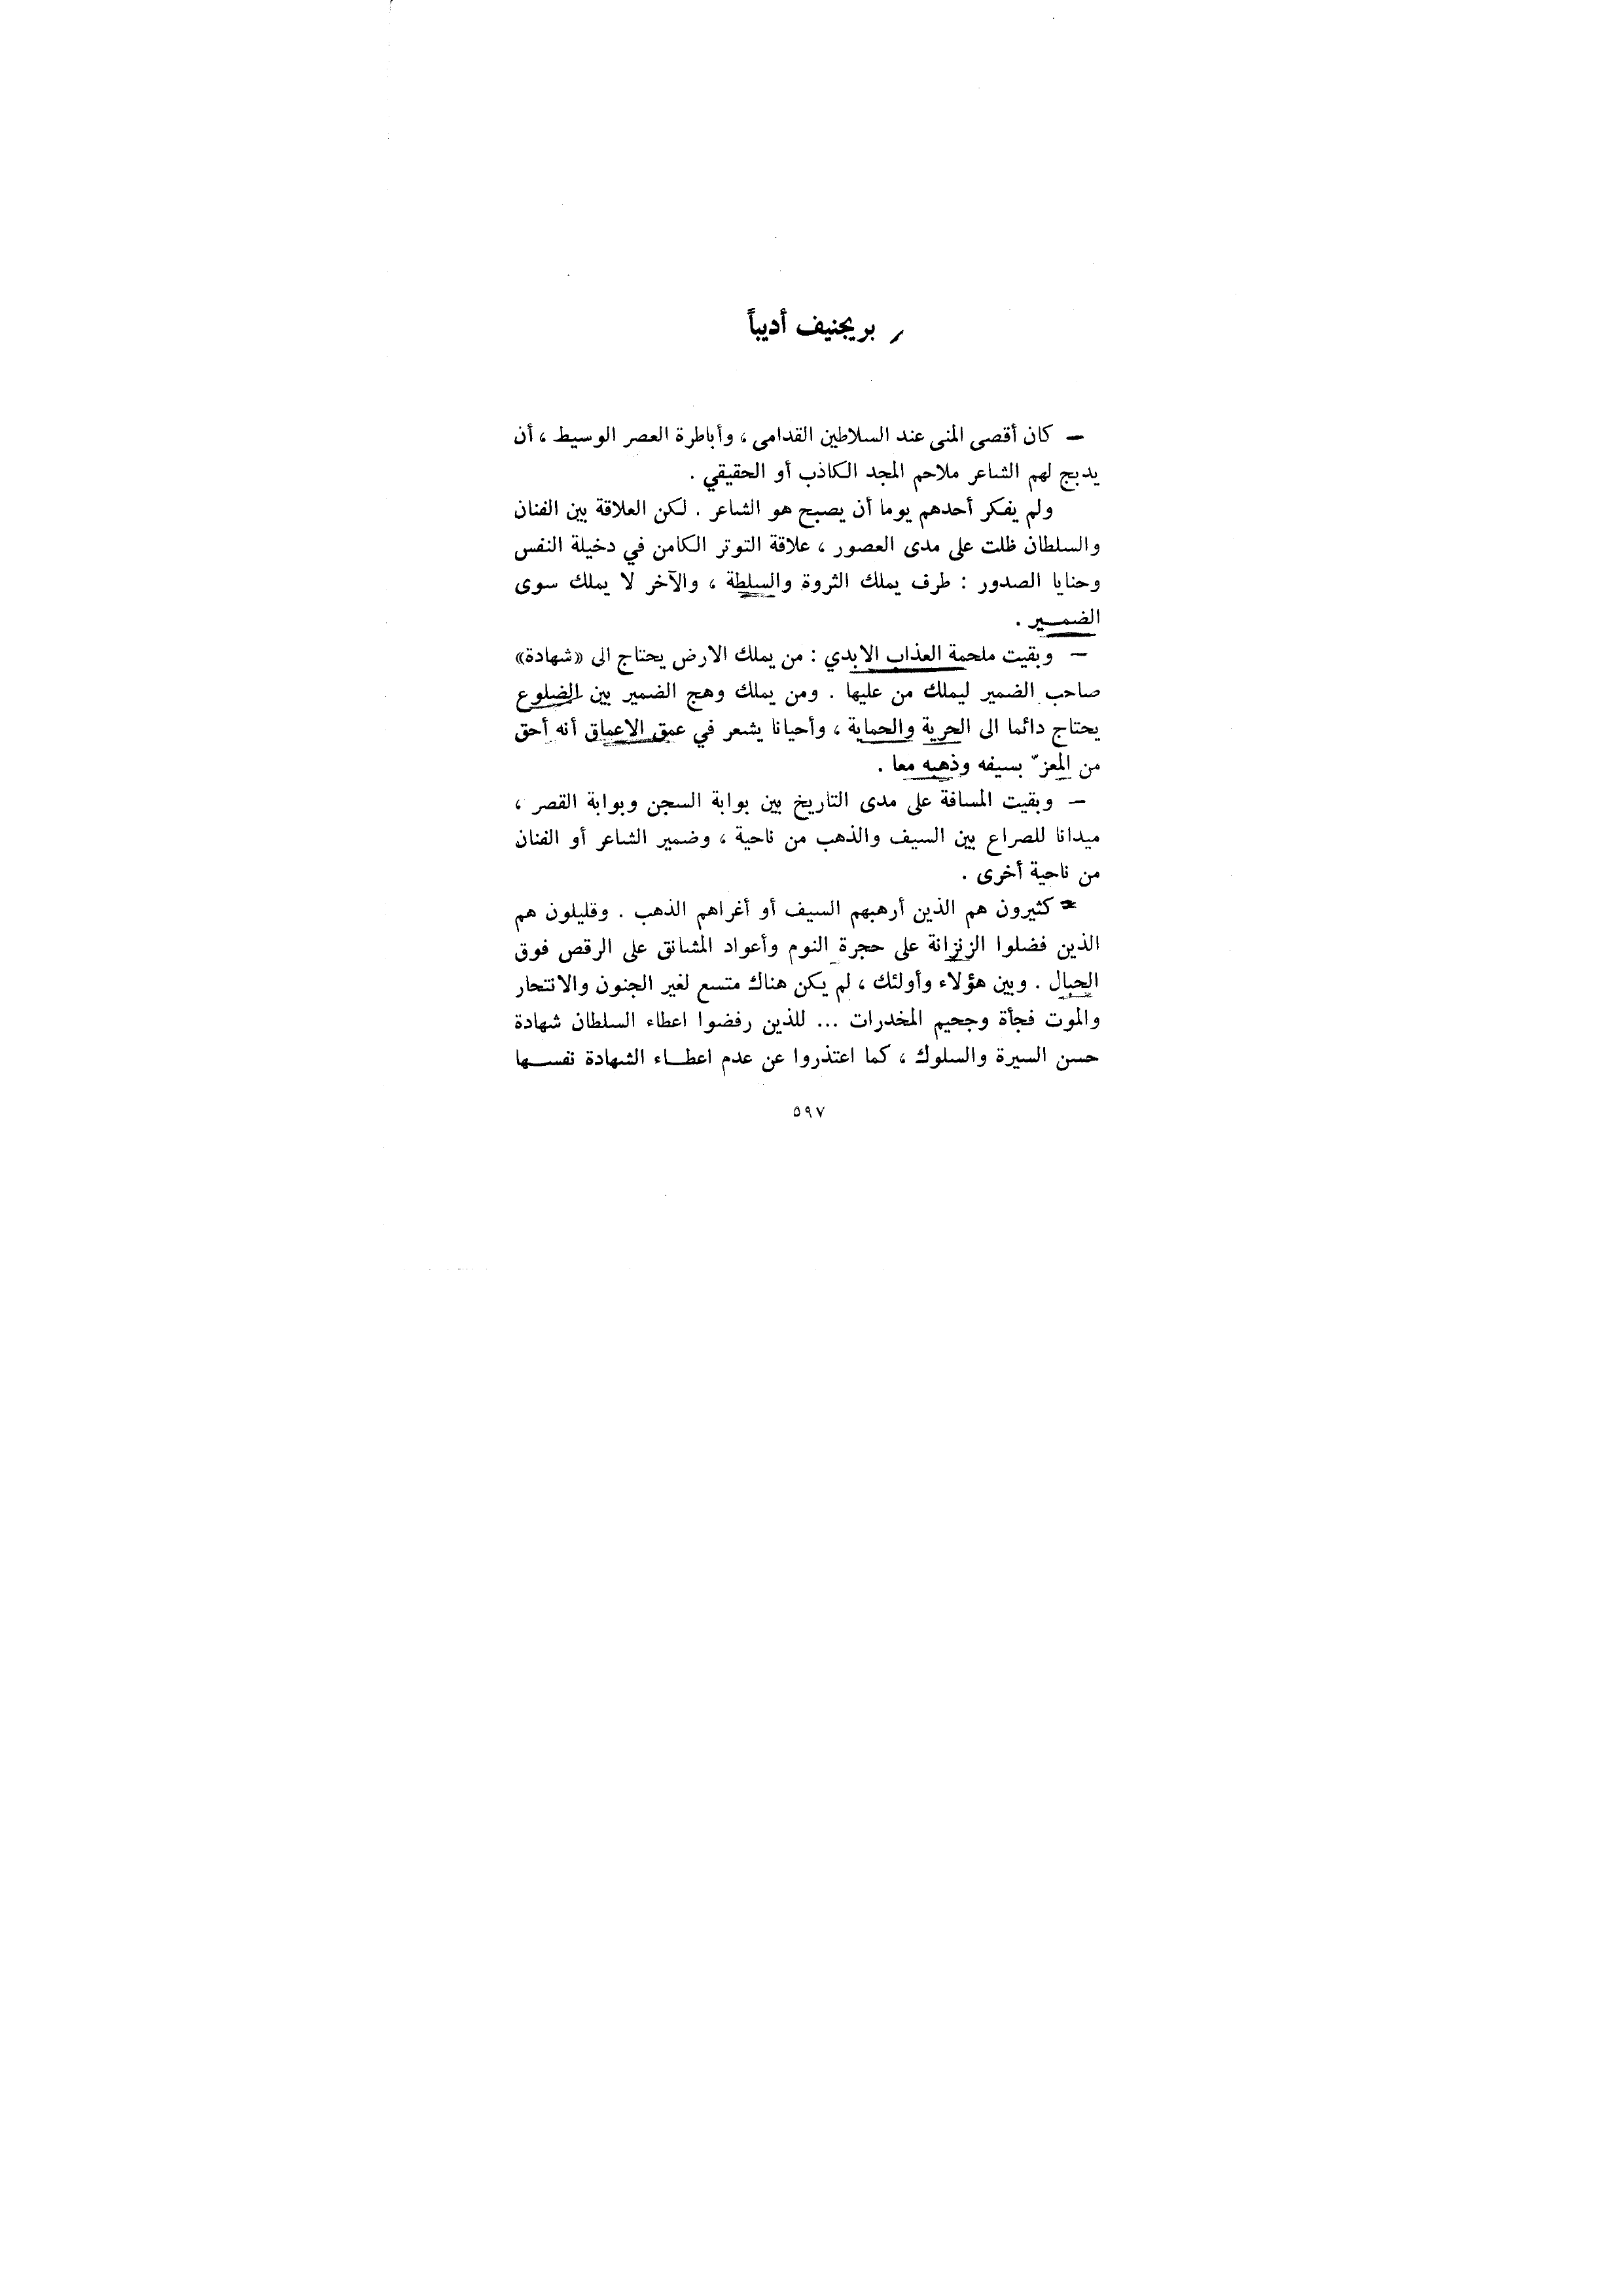 بريجنيف أديباً
— كان أقصى المنى عند السلاطين القدامى ، وأباطرة العصر الوسيط ، أن
يدبج لهم الشاعر ملاحم المجد الكاذب أو الحقيقي .
ولم يفكر أحدهم يوما أن يصبح هو الشاعر . لكن العلاقة بين الفنان
والسلطان ظلت على مدى العصور ، علاقة التوتر الكامن في دخيلة النفس
وحنايا الصدور : طرف يملك الثروة والسلطة ، والآخر لا يملك سوى
الضمير .
— وبقيت ملحمة العذاب الابدي : من يملك الارض يحتاج الى «شهادة»
صاحب الضمير ليملك من عليها . ومن يملك وهج الضمير بين الضلوع
يحتاج دائما الى الحرية والحماية ، وأحيانا يشعر في عمق الاعماق أنه أحق
من المعزّ بسيفه وذهبه معا .
— وبقيت المسافة على مدى التاريخ بين بوابة السجن وبوابة القصر ،
ميدانا للصراع بين السيف والذهب من ناحية ، وضمير الشاعر أو الفنان
من ناحية أخرى .
كثيرون هم الذين أرهبهم السيف أو أغراهم الذهب . وقليلون هم
الذين فضلوا الزنزانة على حجرة النوم وأعواد المشانق على الرقص فوق
الحبال . وبين هؤلاء وأولئك ، لم يكن هناك متسع لغير الجنون والانتحار
والموت فجأة وجحيم المخدرات ... للذين رفضوا اعطاء السلطان شهادة
حسن السيرة والسلوك ، كما اعتذروا عن عدم اعطاء الشهادة نفسها
٥٩٧